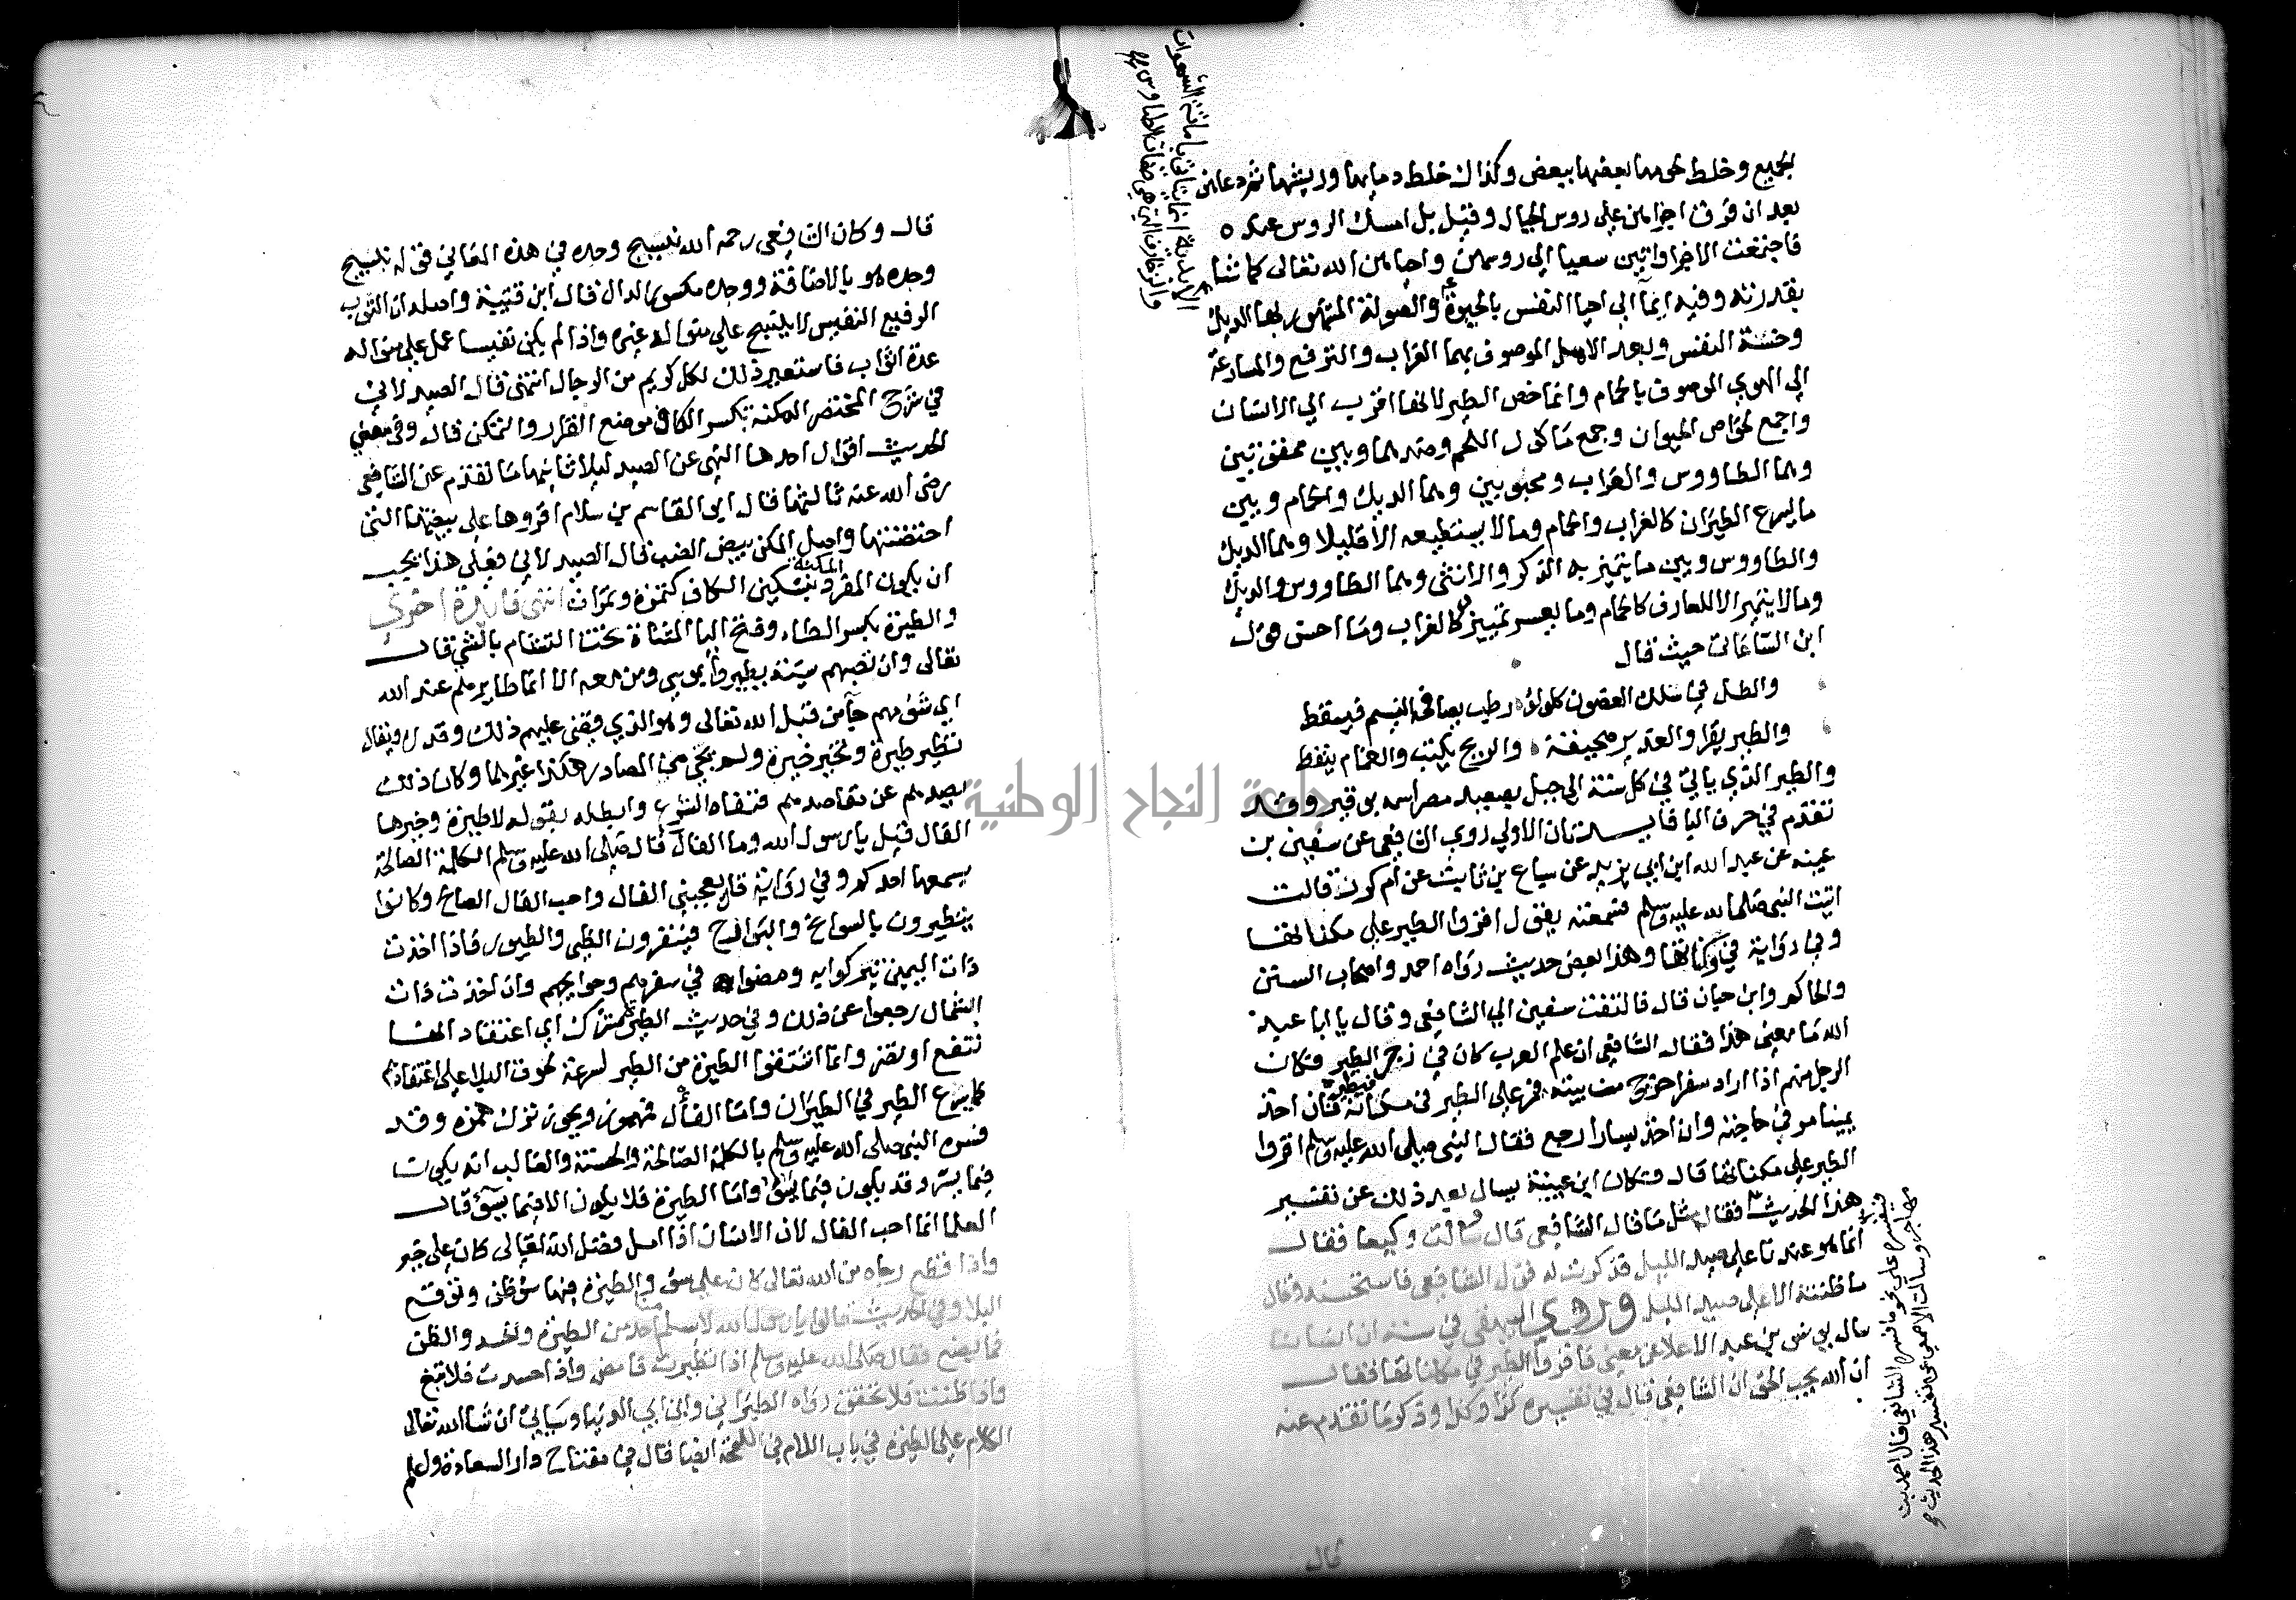 الجميع وخلط لحومها بعضها ببعض وكذلك خلط دماءها وريشها ثم دعاهن
بعد ان فرق اجزاءهن على روس الجبال وقيل بل امسك الروس عنده
فاجتمعت الاجزا واتين سعيا الي روسهن واحياهن الله تعالى كما شا
بقدرته وفيه ايما الى احيا النفس بالحيوة والصولة المشهور بها الديك
وخسة النفس وبعد الامل الموصوف بهما الغراب والترفع والمسارعة
الى الهوي الموصوف بالحمام وانما خص الطير لانها اقرب الي الانسان
واجمع لخواص الحيوان وجمع ماكول اللحم وضدهما وبين ممقوتين
وهما الطاووس والغراب ومحبوبين وهما الديك والحمام وبين
ما يسرع الطيران كالغراب والحمام وما لا يستطيعه الا قليلا وهما الديك
والطاووس وبين ما يتميز به الذكر والانثى وهما الطاووس والديك
وما لا يتميز الا للعارف كالحمام وما يعسر تمييزه كالغراب وما احسن قول
ابن الساعاتي حيث قال
والطل في سلك الغصون كلولؤ رطب يصافحه النسيم فيسقط
والطير يقرا والغدير صحيفة والريح يكتب والغمام ينقط
والطير الذي ياتي في كل سنة الى جبل بصعيد مصر اسمه بوقير وقد
تقدم في حرف اليا فايدتان الاولى روي الشافعي عن سفين بن
عيينه عن عبد الله ابن ابي يزيد عن سباع بن ثابت عن ام كرز قالت
اتيت النبي صلى الله عليه وسلم فسمعته يقول اقروا الطير على مكناتها
وفي رواية في وكناتها وهذا بعض حديث رواه احمد واصحاب السنن
والحاكم وابن حبان قال فالتفت سفين الى الشافعي وقال يا ابا عبد
الله ما معنى هذا فقال الشافعي ان علم العرب كان في زجر الطير فكان
الرجل منهم اذا اراد سفرا خرج من بيته فمر على الطير في مكانه فيطيره فان اخذ
يمينا مر في حاجته وان اخذ يسارا رجع فقال النبي صلى الله عليه وسلم اقروا
الطير على مكناتها قال فكان ابن عيينة يسال بعد ذلك عن تفسير
هذا الحديث فقال مثل ما قال الشافعي قال سالت وكيعا فقال
انما هو عندنا على صيد الليل فذكرت له قول الشافعي فاستحسنه وقال
ما ظننته الا على صيد الليل وروى البيهقي في سننه ان انسانا
سال يونس بن عبد الاعلا عن معنى فاقروا الطير في مكاناتها فقال
ان الله يحب الحق ان الشافعي قال في تفسيره كذا وكذا وذكر ما تقدم عنه
قال
الابدية انما يتاتى باماتة الشهوات
والزخارف التي هي صفات الطاوس
فيفسره على نحو ما فسره الشافعي قال احمد بن
مهاجر وسالت الاصمعي عن تفسير هذا الحديث
جامعة النجاح الوطنية
قال وكان الشافعي رحمه الله نسيج وحده في هذه المعاني قوله نسيج
وحده هو بالاضافة ووحده مكسور الدال قال ابن قتيبة واصله ان الثوب
الرفيع النفيس لا ينسج علي منواله غيره واذا لم يكن نفيسا عمل علي منواله
عدة اثواب فاستعير ذلك لكل كريم من الرجال انتهى قال الصيدلاني
في شرح المختصر المكنة بكسر الكاف موضع القرار والتمكن قال وفي معنى
الحديث اقوال احدها النهي عن الصيد ليلا ثانيهما ما تقدم عن الشافعي
رضى الله عنه ثالثها قال ابو القاسم بن سلام اقروها على بيضها التي
احتضنتها واصل المكن بيض الضب قال الصيدلاني فعلى هذا يجب
ان يكون المفرد المكنة بتسكين الكاف كتمرة وتمر انتهى فايدة اخرى
والطيرة بكسر الطاء وفتح اليا المثناة تحت التشام بالشي قال
تعالى وان تصبهم سيئة يطيروا بموسى ومن معه الا انما طايرهم عند الله
اي شومهم جا من قبل الله تعالى وهو الذي قضى عليهم ذلك وقدره ويقال
تطير طيرة وتخير خيرة ولم يجي من المصادر هكذا غيرهما وكان ذلك
يصدهم عن مقاصدهم فنفاه الشرع وابطله بقوله لا طيرة وخيرها
الفال قيل يا رسول الله وما الفال قال صلى الله عليه وسلم الكلمة الصالحة
يسمعها احدكم وفي رواية قال يعجبني الفال واحب الفال الصالح وكانوا
يتطيرون بالسوانح والبوارح فينفرون الظبي والطيور فاذا اخذت
ذات اليمين تبركوا به ومضوا في سفرهم وحوايجهم وان اخذت ذات
الشمال رجعوا عن ذلك وفي حديث الطيرة شرك اي اعتقاد انها
تنفع او تضر وانما اشتقوا الطيرة من الطير لسرعة لحوق البلا على اعتقادهم
كما يسرع الطير في الطيران واما الفأل فمهموز ويجوز ترك همزه وقد
فسره النبي صلى الله عليه وسلم بالكلمة الصالحة والحسنة والغالب انه يكون
فيما يسر وقد يكون فيما يسوء واما الطيرة فلا يكون الا فيما يسوء قال
العلما انما احب الفال لان الانسان اذا امل فضل الله تعالى كان على خير
واذا قطع رجاه من الله تعالى كان على سوء والطيرة فيها سوء ظن وتوقع
البلا وفي الحديث قالوا يا رسول الله لا يسلم منا احد من الطيرة والحسد والظن
فما يصنع فقال صلى الله عليه وسلم اذا تطيرت فامض واذا حسدت فلا تبغ
واذا ظننت فلا تحقق رواه الطبراني وابن ابي الدنيا وسياتي ان شا الله تعالى
الكلام على الطيرة في باب اللام في اللقحة ايضا قال في مفتاح دار السعادة واعلم